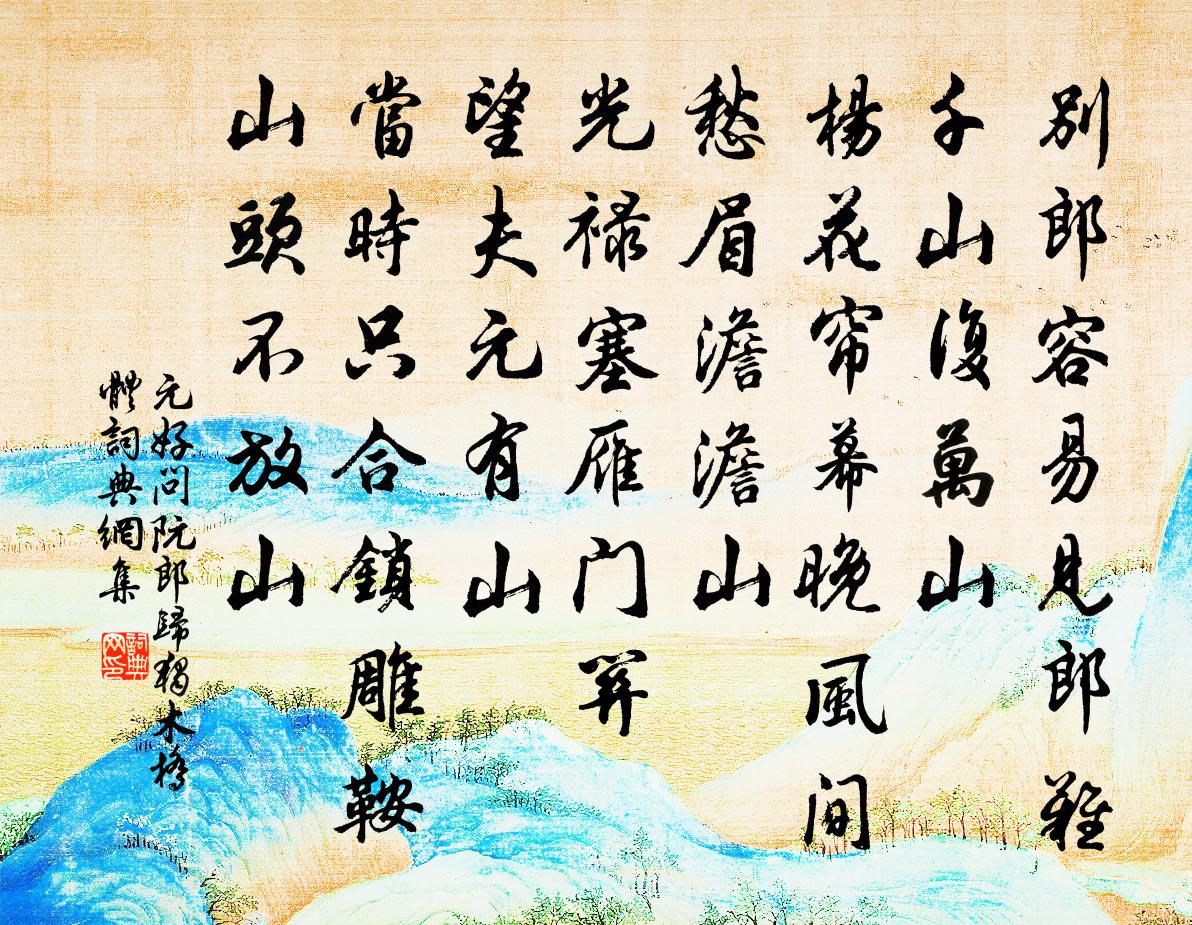 別郎容易見郎難
千山復萬山
楊花帘幕晚風间
愁眉澹澹山
光禄塞雁门関
望夫元有山
當時只合鎖雕鞍
山頭不放山
元好問阮郎歸獨木橋
體詞典網集
詞典网印